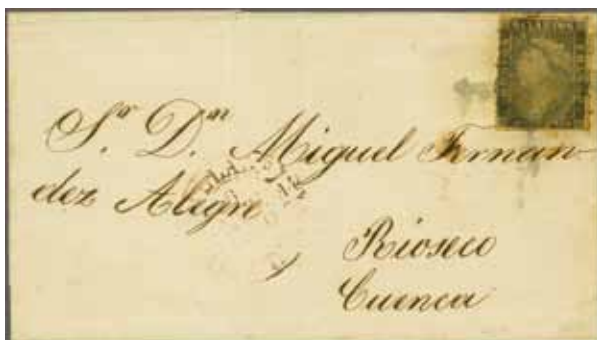 S.r D.n Miguel Fernan-
dez Alegre
Rioseco
Cuenca